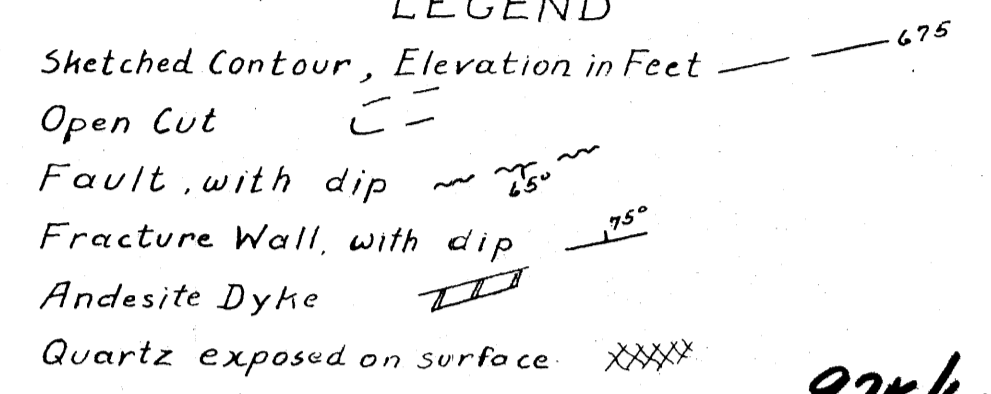 LEGEND
Sketched Contour, Elevation in Feet 675
Open Cut
Fault, with dip 65°
Fracture Wall, with dip 75°
Andesite Dyke
Quartz exposed on surface